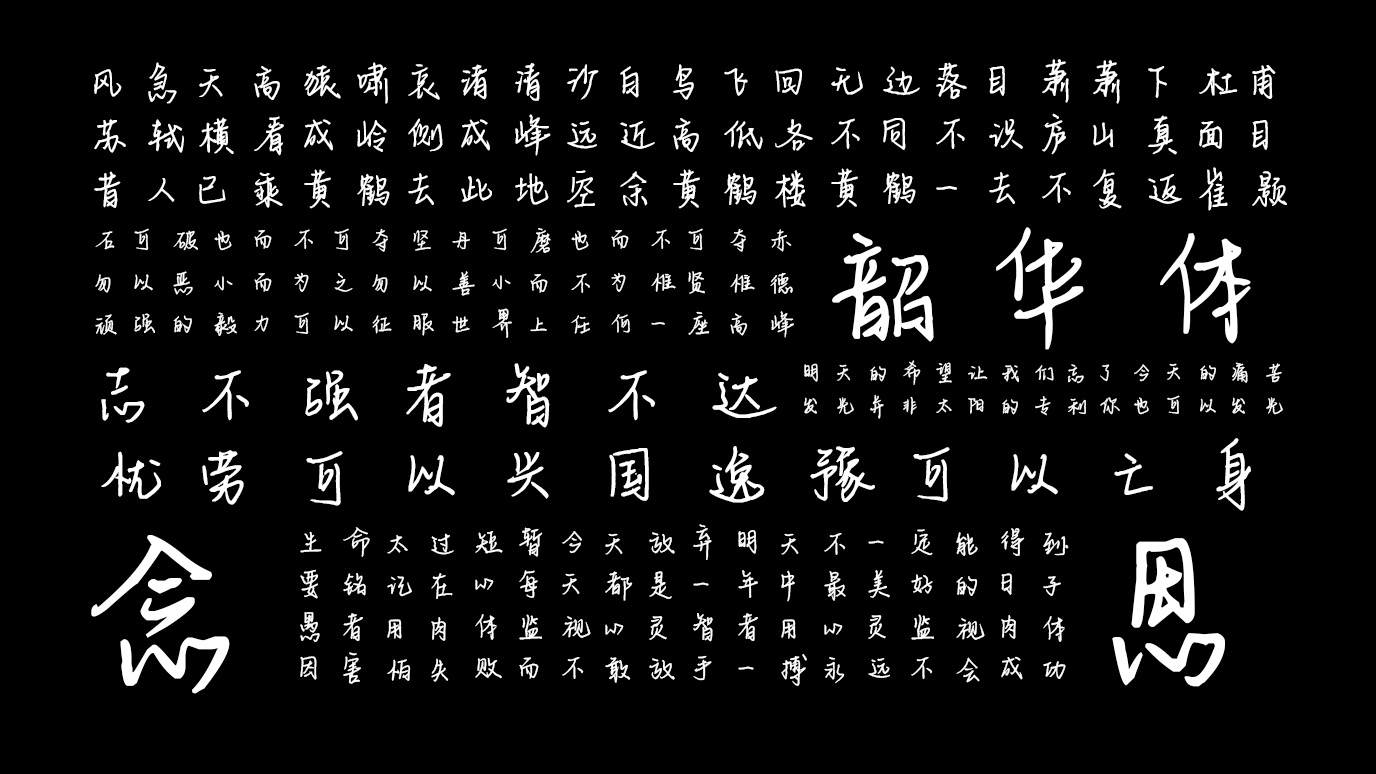 风急天高猿啸哀渚清沙白鸟飞回无边落目萧萧下杜甫
苏轼横看成岭侧成峰远近高低各不同不识庐山真面目
昔人已乘黄鹤去此地空余黄鹤楼黄鹤一去不复返崔颢
石可破也而不可夺坚丹可磨也而不可夺赤
勿以恶小而为之勿以善小而不为惟贤惟德
顽强的毅力可以征服世界上任何一座高峰
韶华体
志不强者智不达
明天的希望让我们忘了今天的痛苦
发光并非太阳的专利你也可以发光
忧劳可以兴国逸豫可以亡身
念
生命太过短暂今天放弃明天不一定能得到
要铭记在心每天都是一年中最美好的日子
愚者用肉体监视心灵智者用心灵监视肉体
因害怕失败而不敢放手一搏永远不会成功
恩